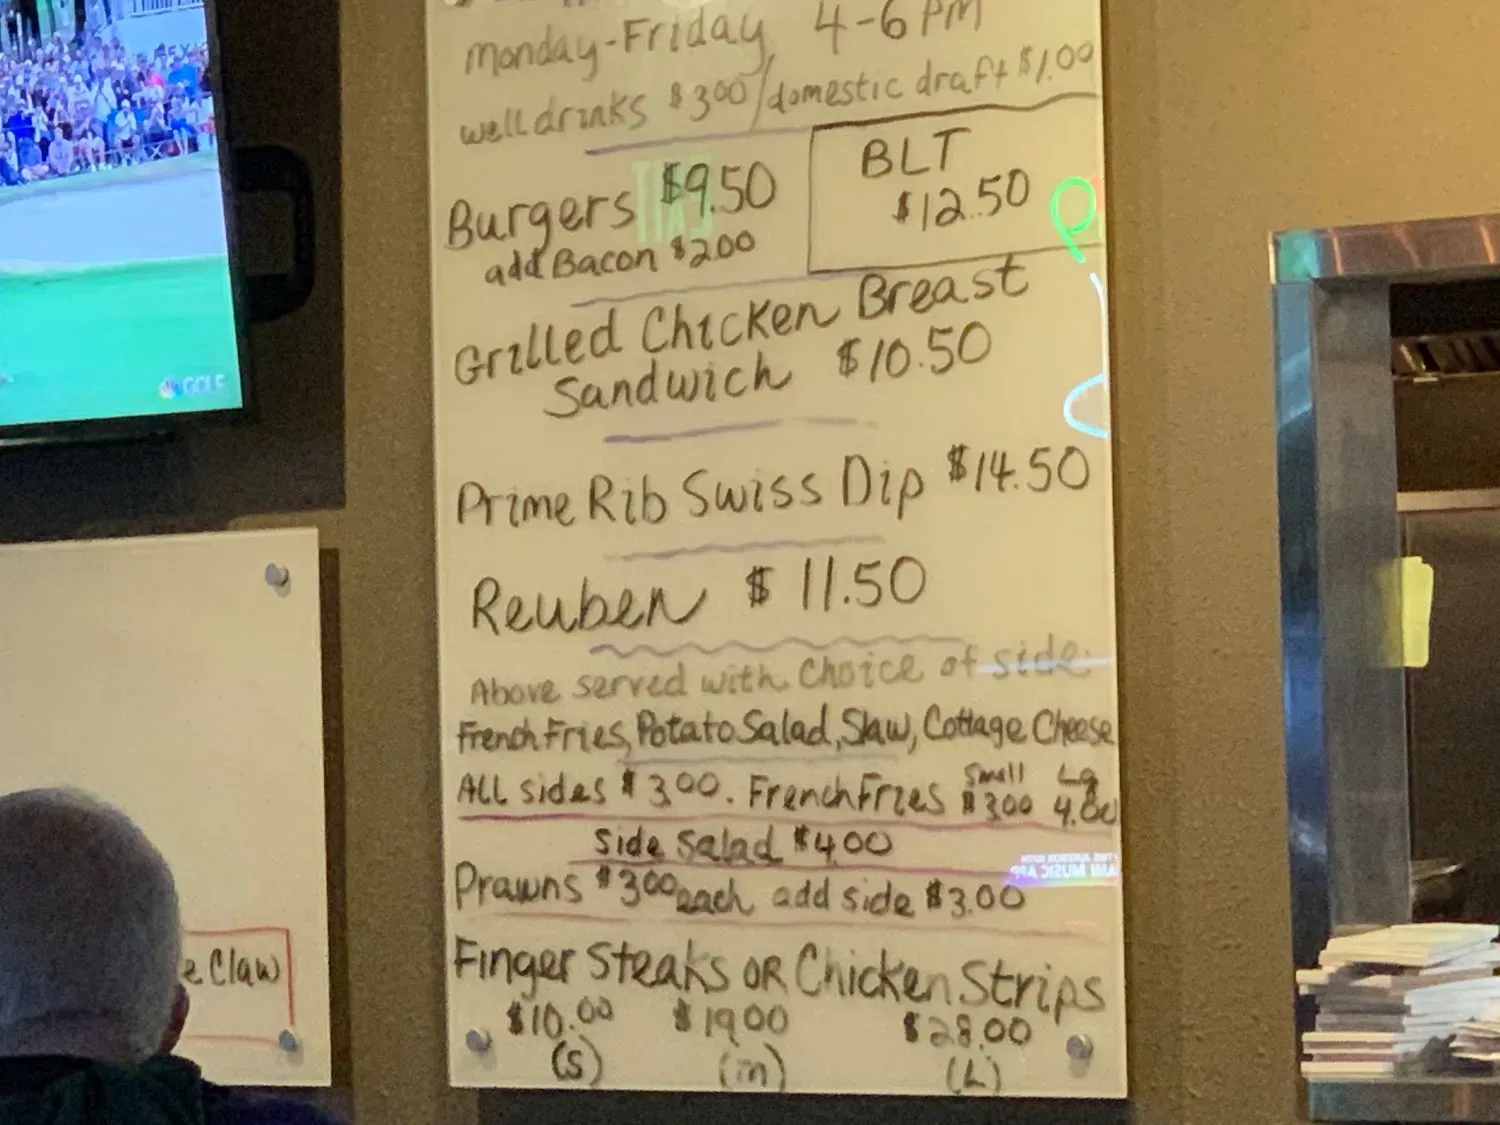 Monday-Friday 4-6 PM
well drinks $3.00/domestic draft $1.00
Burgers $9.50
add Bacon $2.00
BLT
$12.50
Grilled Chicken Breast
Sandwich $10.50
Prime Rib Swiss Dip $14.50
Reuben $11.50
Above served with Choice of side:
French Fries, Potato Salad, Slaw, Cottage Cheese
ALL sides $3.00. French Fries Small $3.00 Lg 4.00
Side Salad $4.00
Prawns $3.00 each add side $3.00
Finger Steaks OR Chicken Strips
$10.00 $19.00 $28.00
(S) (m) (L)
GOLF
e Claw